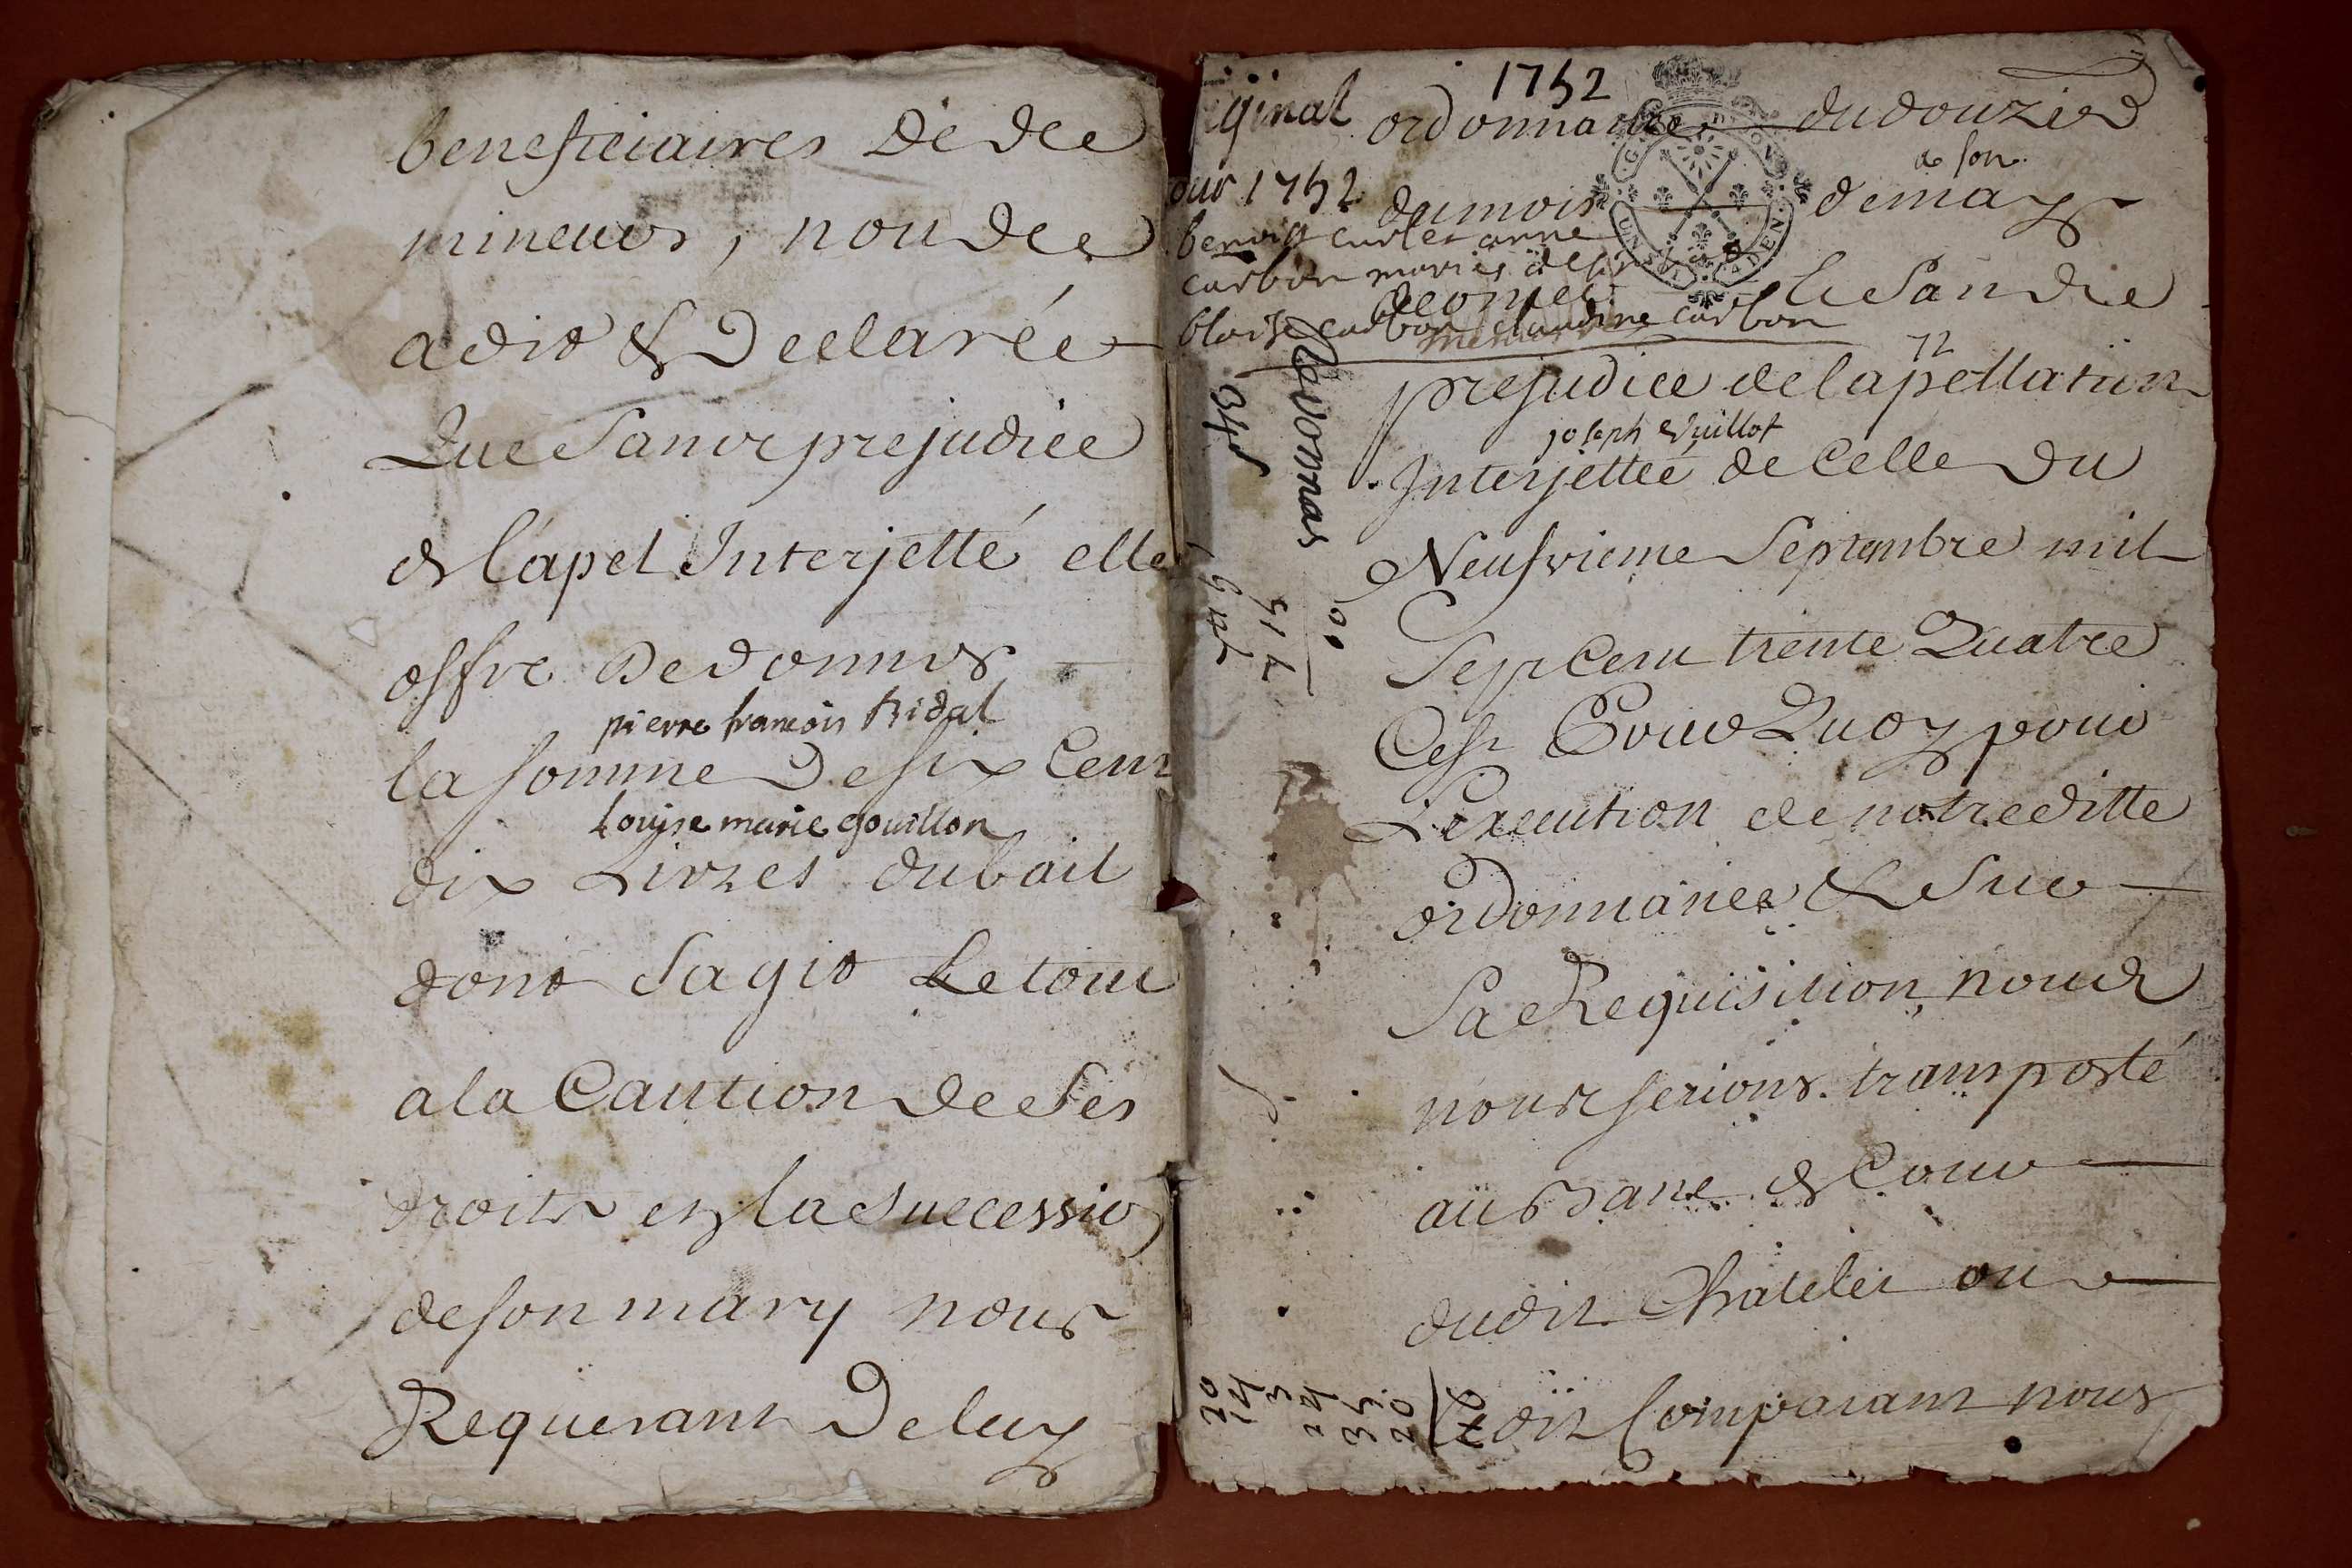 beneficiaires De dee
mineurs, nou dee
a dit & Declarée
Que Sans prejudice
& l'apel Interjetté elle
offre De donner
pierre francois tridal
la somme De six Cent
Louyse marie gouillon
dix Livres du bail
dont Sagit Le tout
a la Caution de Ses
droits en la Succession
de son mary nous
Requerant De luy
iginal 1752
ordonnance du douzie
a son
our 1752
du mois de may
benoit curlet anne
carbon maries
Sandie
blaise carbon claudine carbon
72
prejudice de lapellation
joseph Vuillot
Interjettée de Celle Du
Neufvieme Septembre mil
Sept Cent trente Quatre
Cest Pour Quoy pour
L'execution de notreditte
ordonnance & Sur
Sa Requisition nous
nous serions transporté
au Banc & Cour
dudit Chatelet ou
Ledit Comparant nous
Revonnas
34
20
14
3
24
35
20